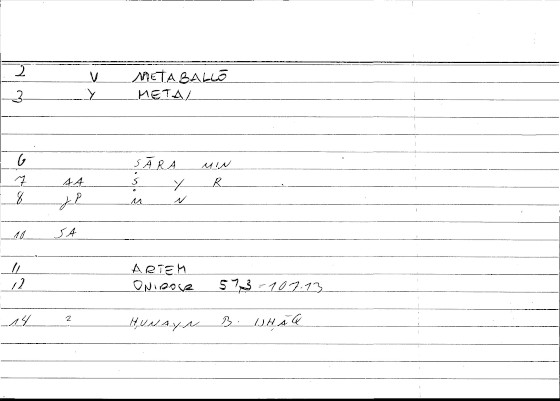 2 V METABALLŌ
3 Y META/
6 ṢĀRA MIN
7 AA Ṣ Y R
8 JP M N
10 SA
11 ARTEM
12 ONIROCR 57,3 - 107.13
14 2 ḤUNAYN B. ISḤĀQ